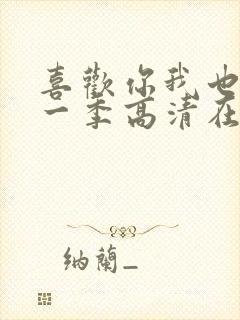 喜歡你我也
一季高清在
納蘭_